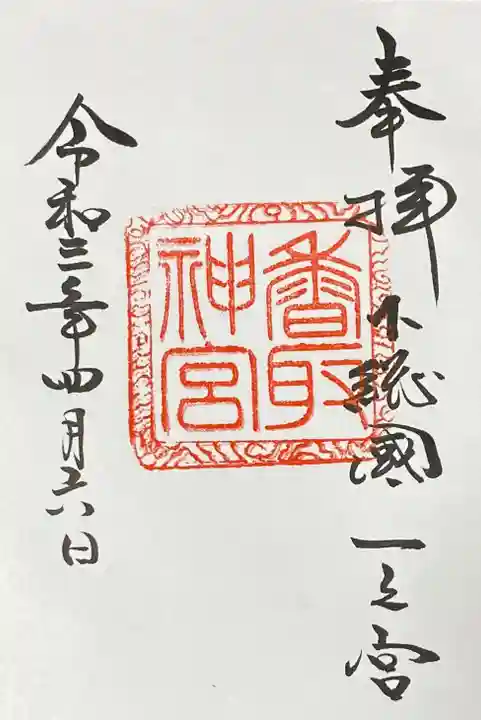 奉拝 下総國 一之宮
香取
神宮
令和三年四月六日